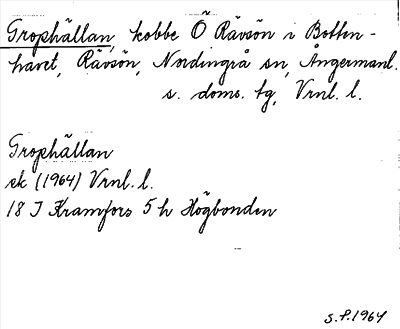 Grophällan, kobbe Ö Rävsön i Botten-
havet, Rävsön, Nordingrå sn, Ångermanl.
s. doms. tg, Vrnl. l.
Grophällan
ek (1964) Vrnl. l.
18 I Kramfors 5 h Högbonden
S.F. 1964